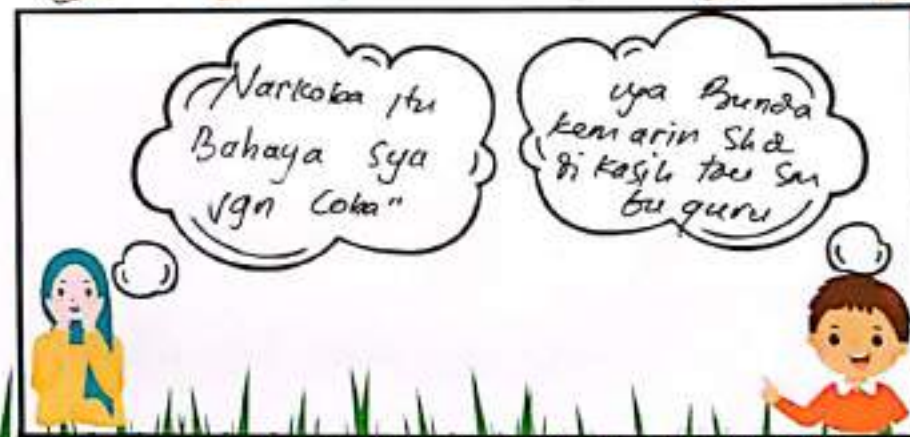 Narkoba itu
Bahaya Sya
jgn Coba"
iya Bunda
kemarin Sha
di kasih tau sm
bu guru